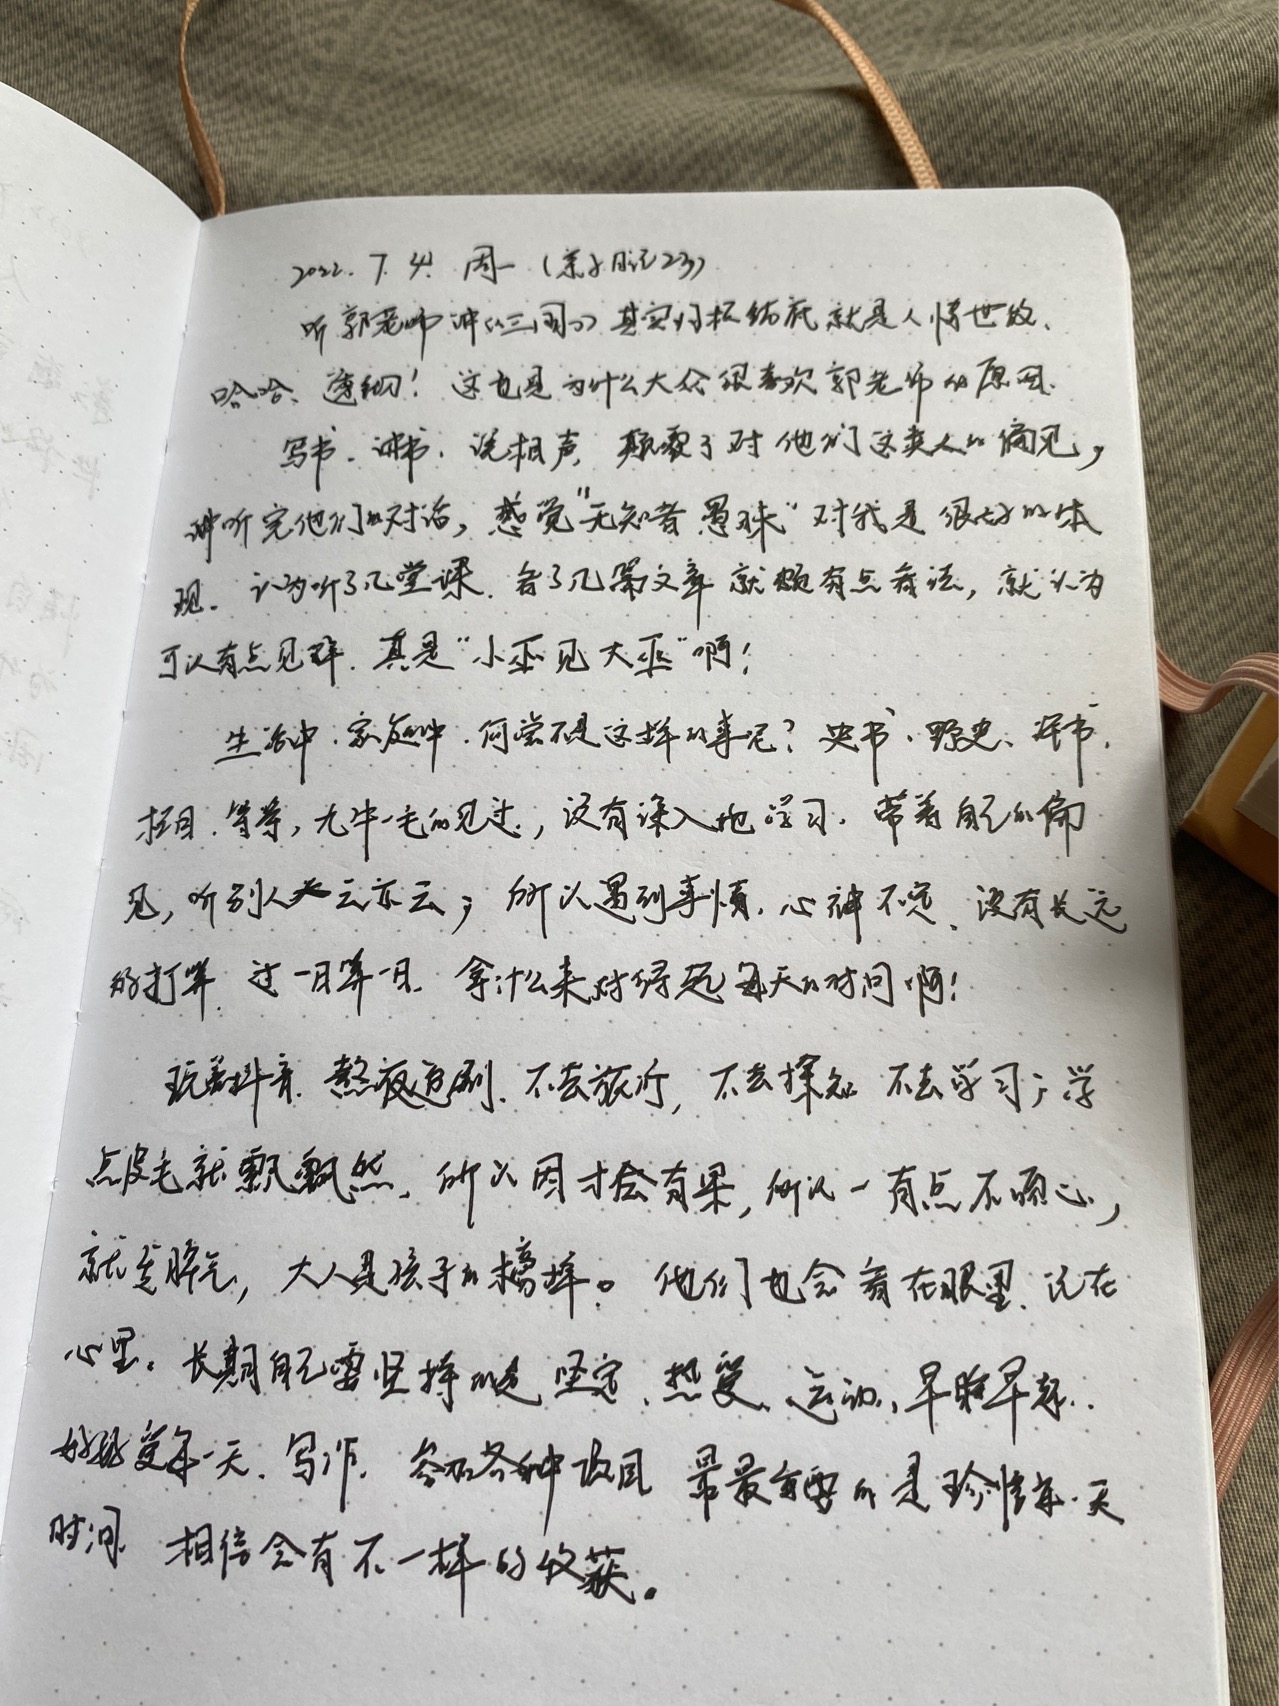 2022.7.4. 周一（亲子日记23）
听郭老师讲《三国》其实归根结底就是人情世故、
哈哈、透彻！这也是为什么大众很喜欢郭老师的原因.
写书、讲书、说相声，颠覆了对他们这类人的偏见，
听完他们的对话，感觉“无知者愚昧”对我是很好的体
现、认为听了几堂课、看了几篇文章就颇有点看法，就认为
可以有点见解、真是“小巫见大巫”啊！
生活中、家庭中、何尝不是这样的事呢？史书、野史、
等等，九牛一毛的见过，没有深入地学习、带着自己的偏
见，听别人云亦云；所以遇到事情、心神不定、没有长远
的打算、过一日算一日、拿什么来对得起每天的时间啊！
玩着抖音、熬夜追剧、不去旅行，不去探知、不去学习；学
点皮毛就飘飘然、所以因才会有果，所以一有点不顺心，
就发脾气，大人是孩子的榜样。他们也会看在眼里、记在
心里。长期自己需坚持的是坚定、热爱、运动、早睡早起、
好好爱每一天、写作、各种 最最重要的是珍惜每一天
时间、相信会有不一样的收获。